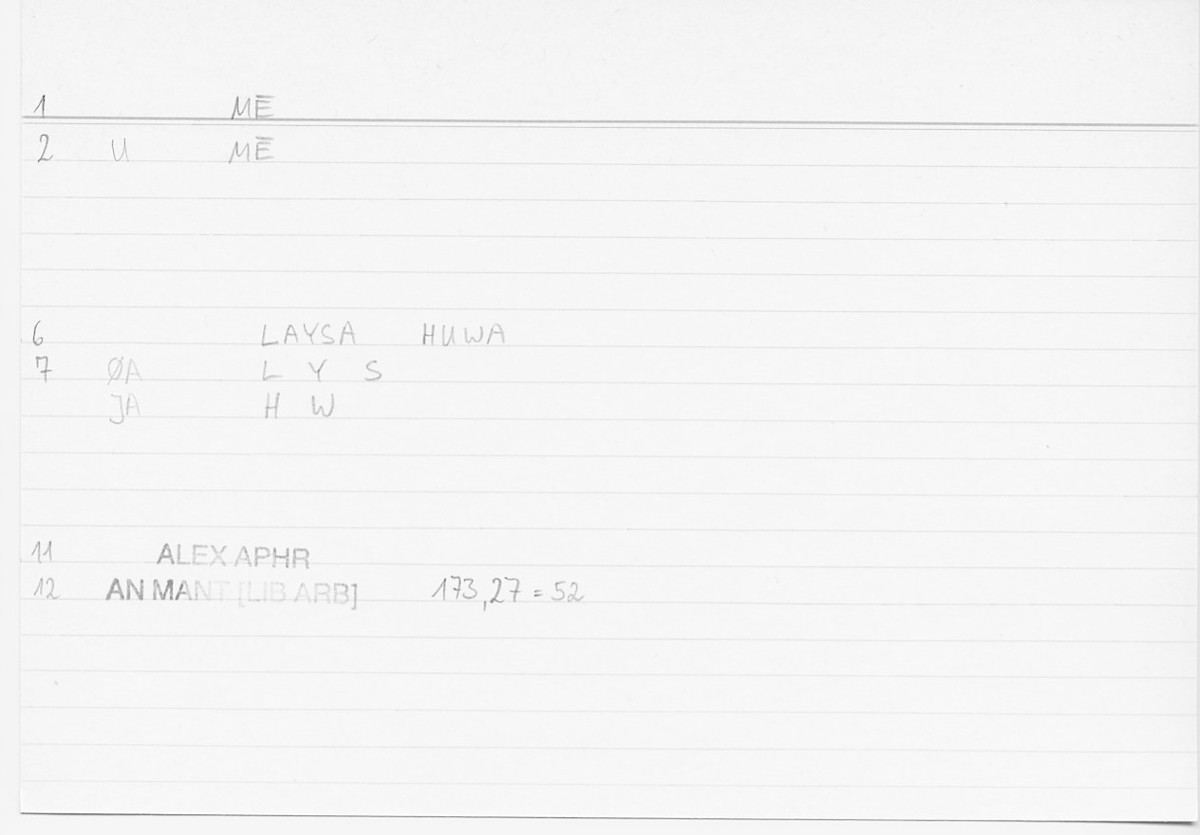 1 MĒ
2 U MĒ
6 LAYSA HUWA
7 ØA L Y S
JA H W
11 ALEX APHR
12 AN MANT [LIB ARB] 173,27 = 52